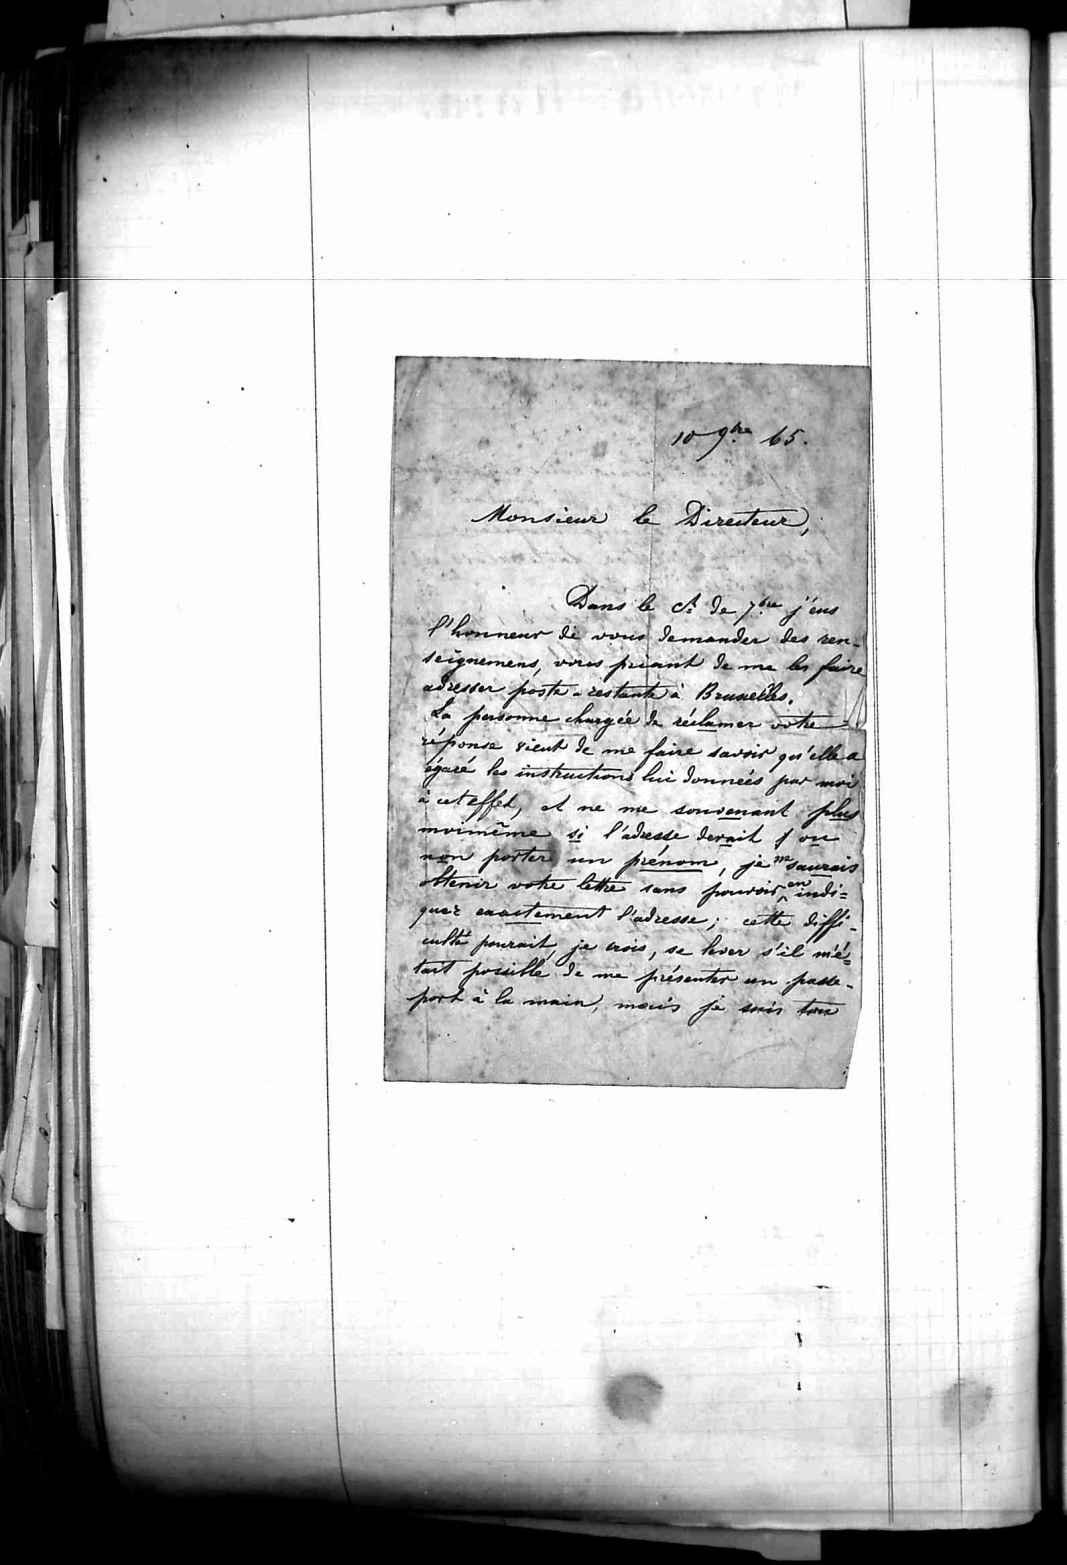 10 9bre 65.
Monsieur le Directeur,
Dans le ct de 7bre j'eus
l'honneur de vous demander des ren-
seignemens, vous priant de me les faire
adresser poste-restante à Bruxelles.
La personne chargée de réclamer votre
réponse vient de me faire savoir qu'elle a
égaré les instructions lui données par moi
à cet effet, et ne me souvenant plus
moi même si l'adresse devait ou
non porter un prénom, je saurais
obtenir votre lettre sans pouvoir en indi=
quer exactement l'adresse; cette diffi-
culté pourait, je crois, se lever s'il m'é=
tait possible de me présenter un passe-
port à la main, mais je suis